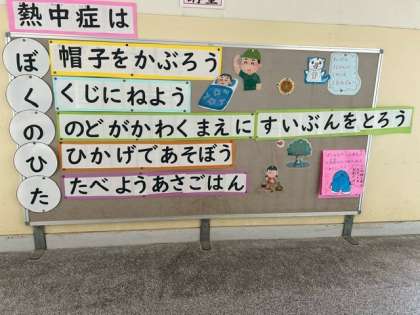 熱中症は
ぼ 帽子をかぶろう
く くじにねよう
の のどがかわくまえに すいぶんをとろう
ひ ひかげであそぼう
た たべようあさごはん